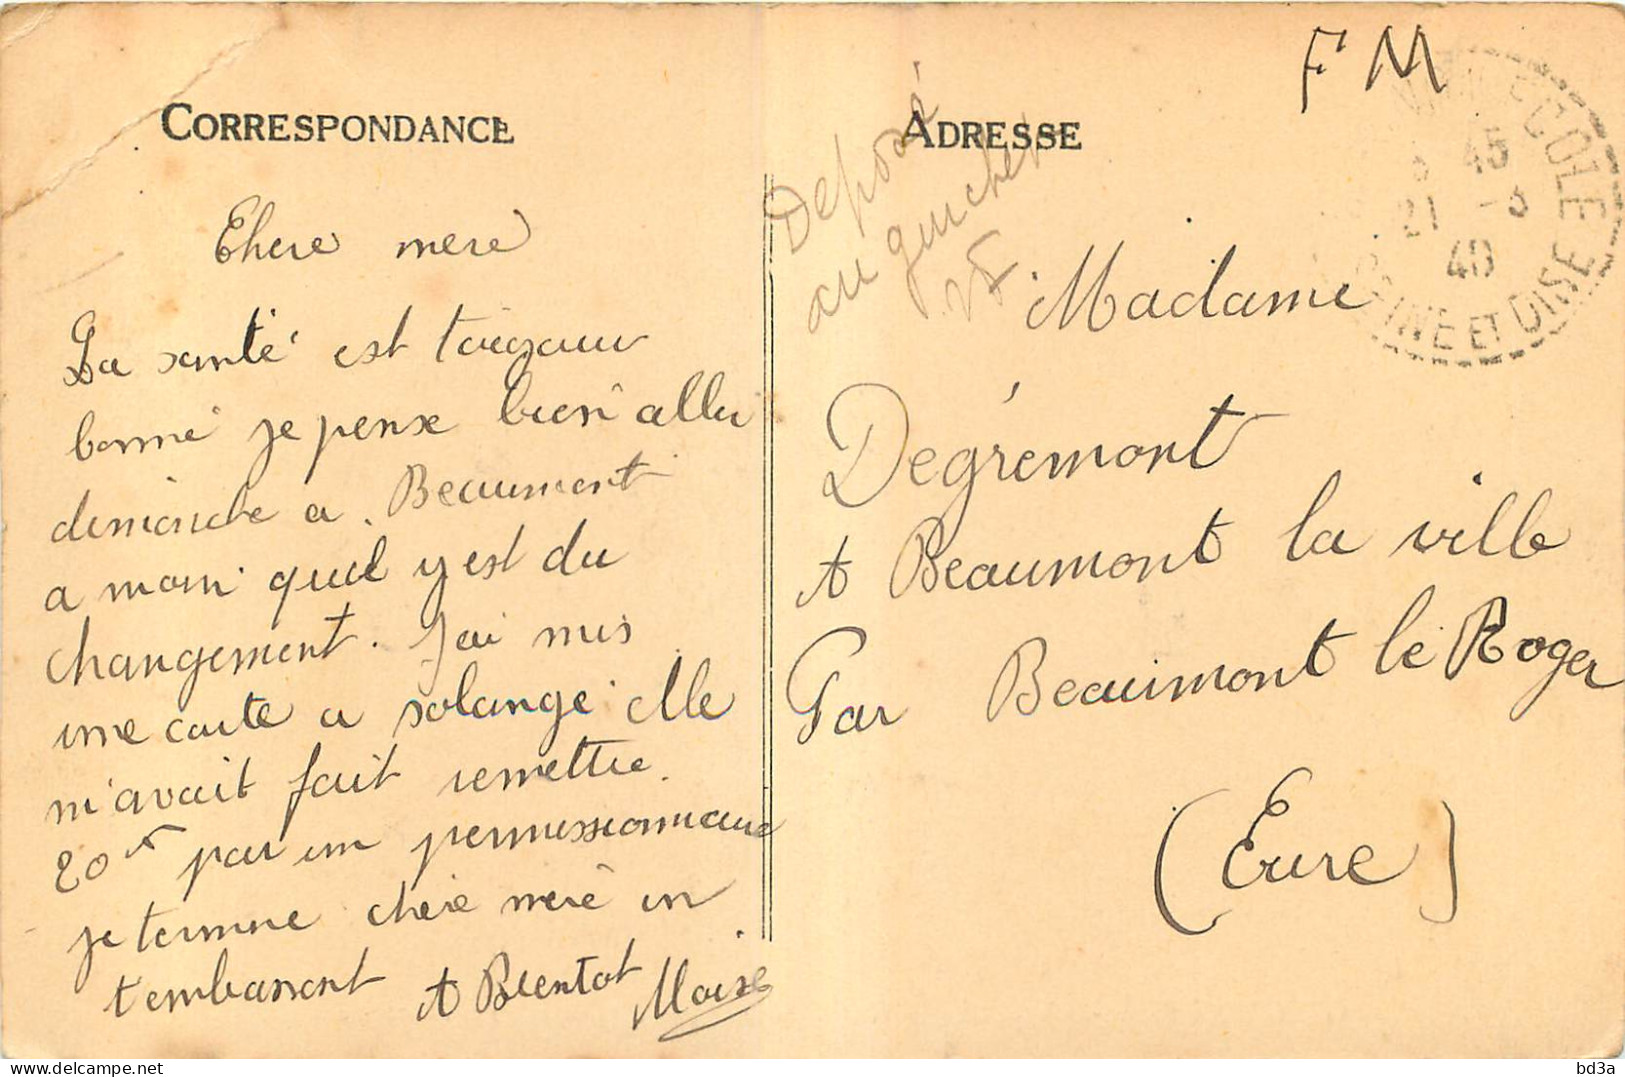 CORRESPONDANCE
Chere mere
La santé est toujour
bonne je pense bien aller
dimanche a Beaumont
a moin quil y est du
changement. J'ai mis
une carte a solange elle
m'avait fait remettre
20 par un permissionnaire
je termine chere mere en
t'embrassent A Bientot Moise
Deposé
au guichet
ADRESSE
F M
45
21 -3
40
SEINE ET OISE
Madame
Degremont
A Beaumont la ville
Par Beaumont le Roger
(Eure)
delcampe.net
bd3a